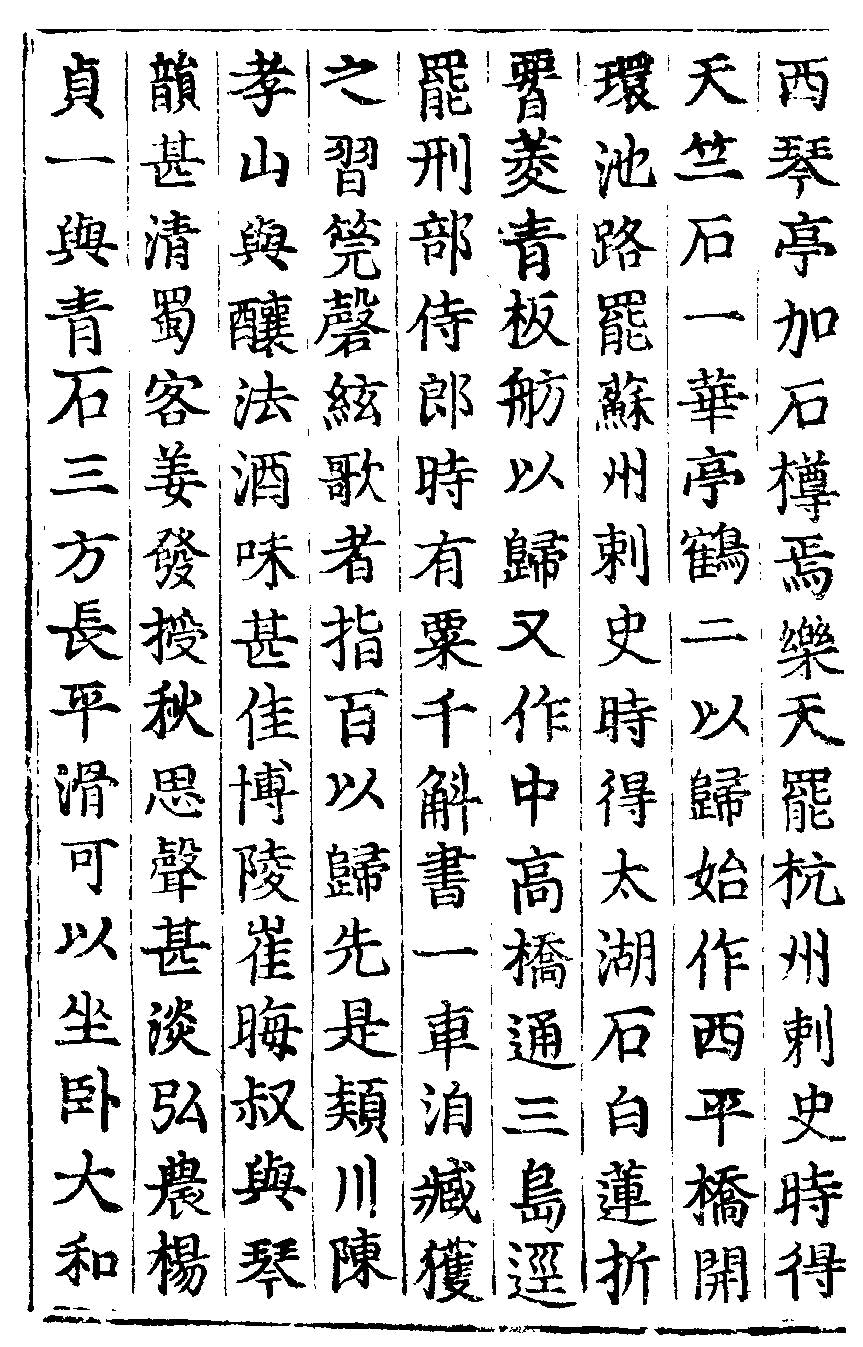 西琴亭加石樽焉樂天罷杭州刺史時得
天竺石一華亭鶴二以歸始作西平橋開
環池路罷蘇州刺史時得太湖石白蓮折
腰菱青板舫以歸又作中高橋通三島逕
罷刑部侍郎時有粟千斛書一車洎臧獲
之習筦磬絃歌者指百以歸先是潁川陳
孝山與釀法酒味甚佳博陵崔晦叔與琴
韻甚清蜀客姜發授秋思聲甚淡弘農楊
貞一與青石三方長平滑可以坐卧大和